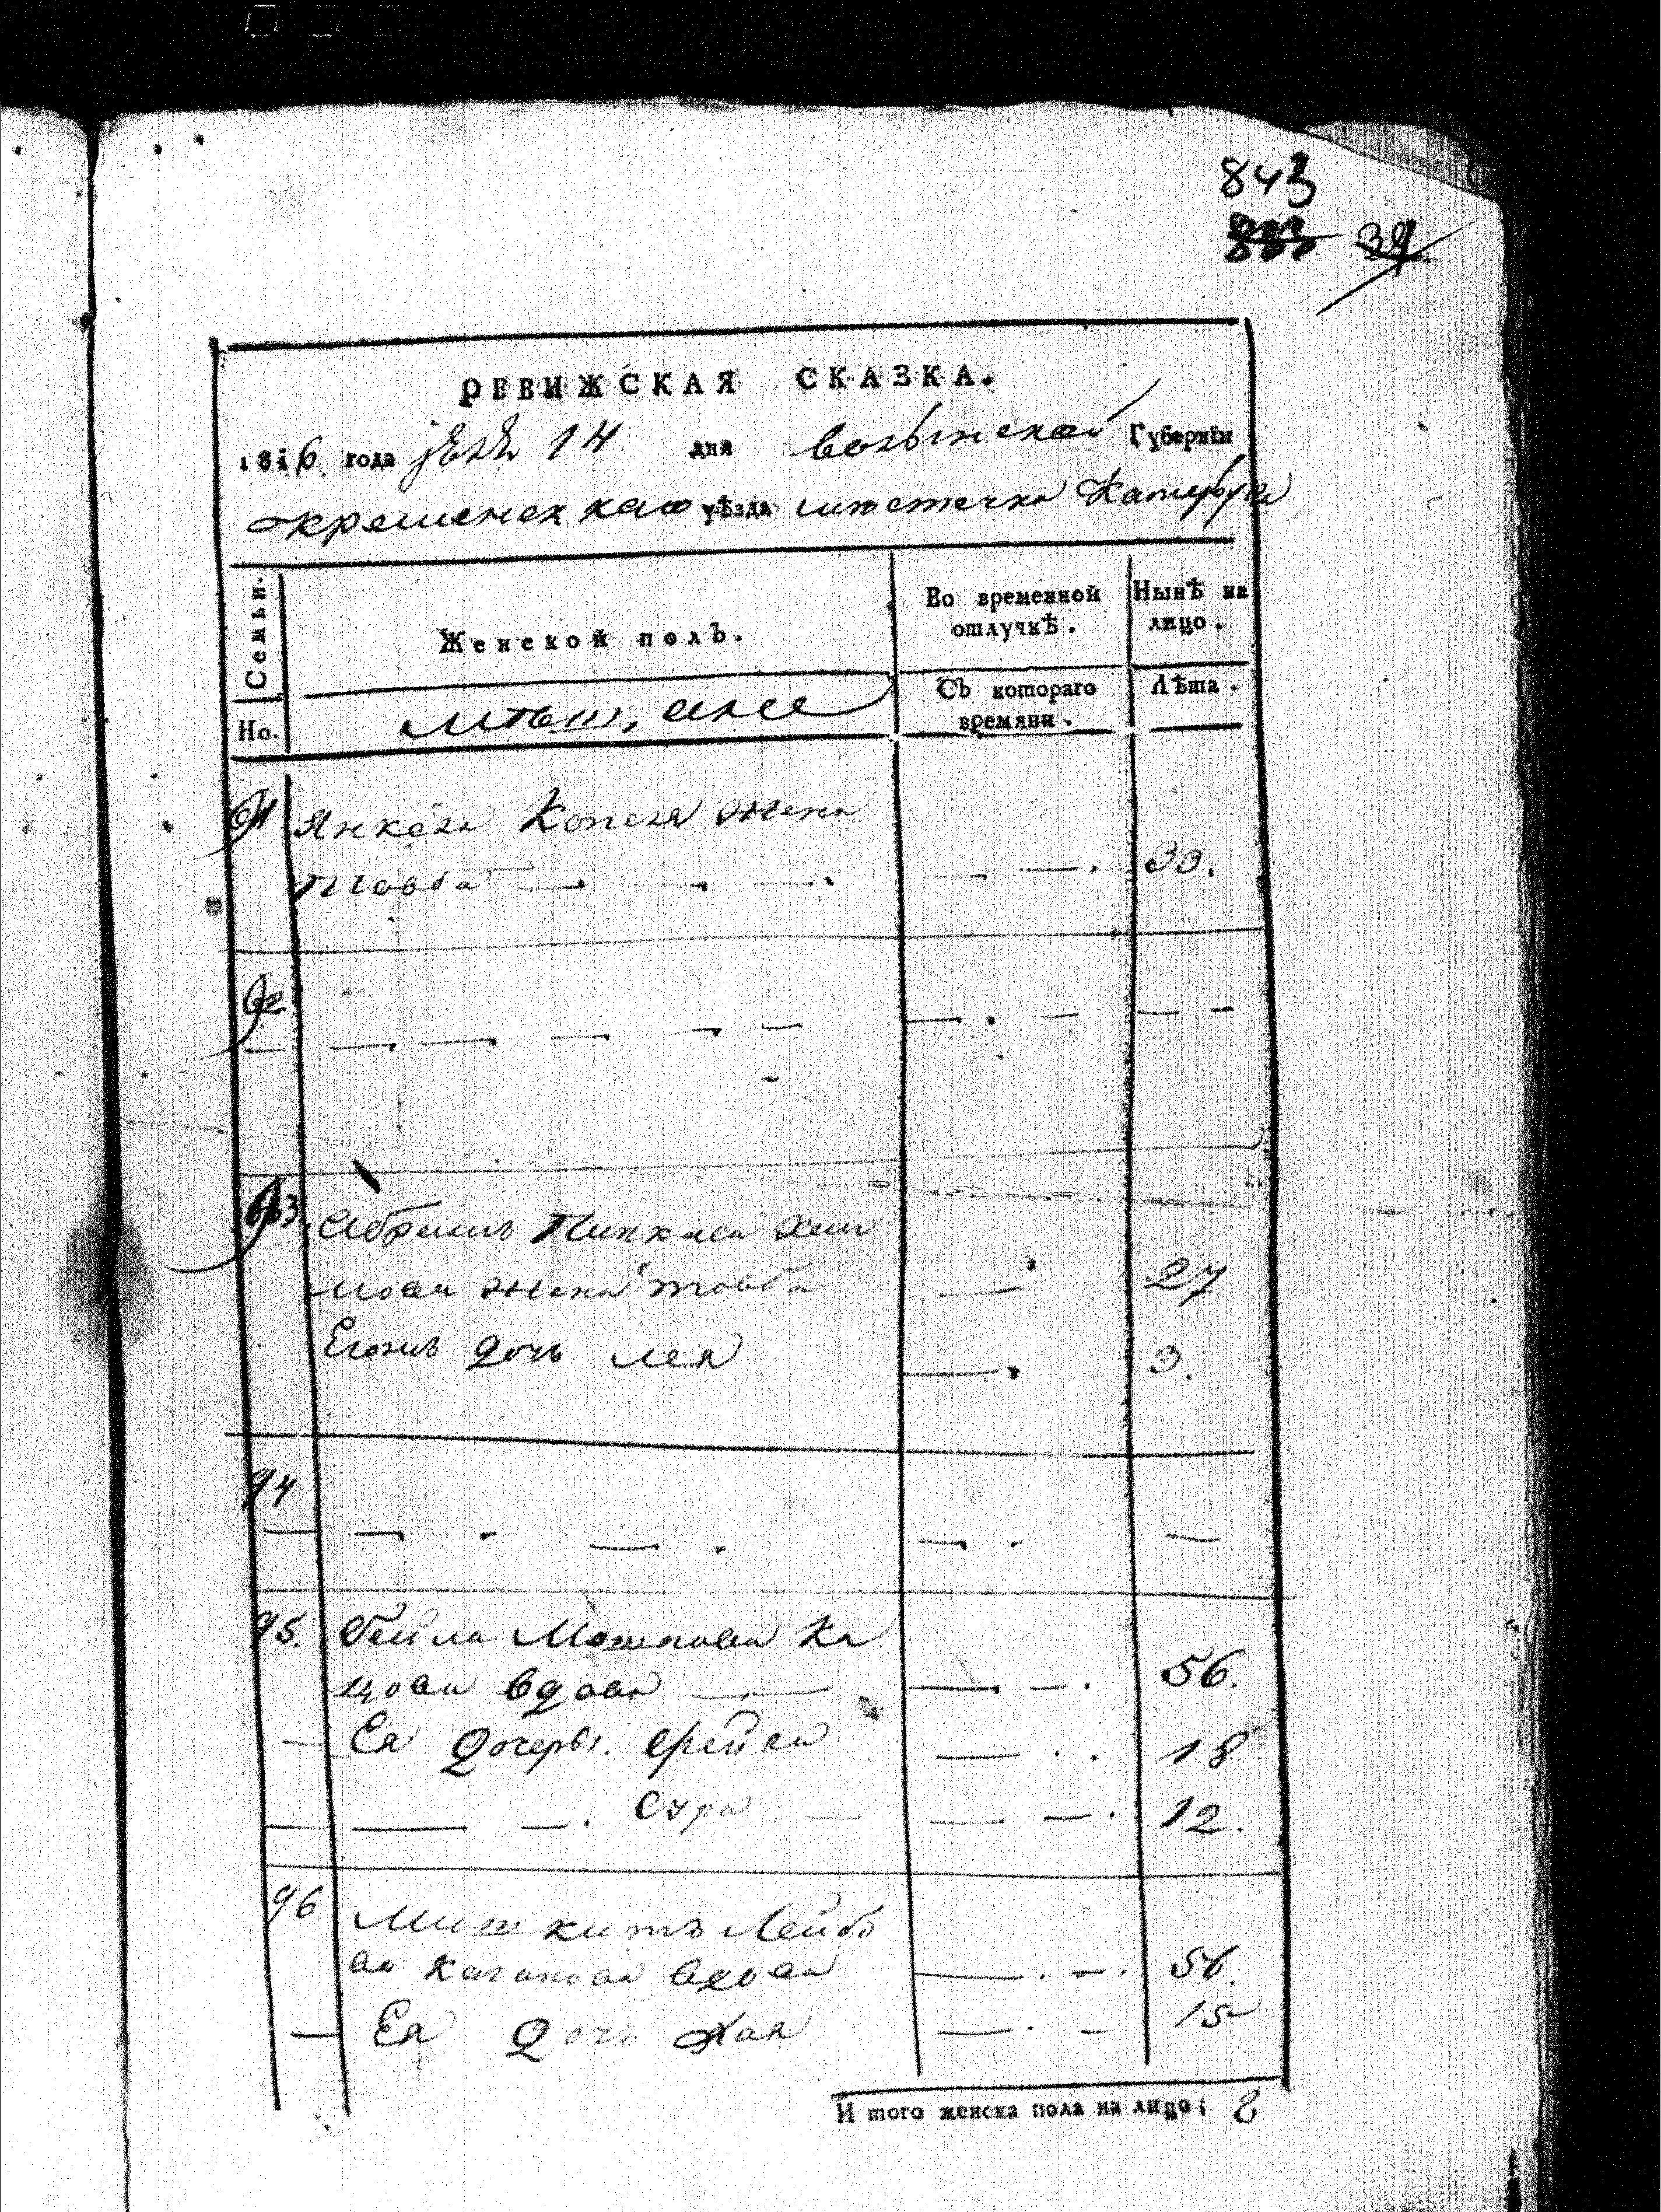 843
РЕВИЖСКАЯ СКАЗКА.
1816 года 14 дня Волынской Губернїи
Кременецкаго уѣзда местечка Катербурга
Семьи. Женской полъ. Во временной отлучкѣ. Нынѣ на лицо.
Но. Съ котораго времяни. Лѣта.
91 Янкеля Копеля жена
Товба 33.
92
93. Абрамъ Пинкаса Хаи
мова жена товба 27
Егожъ дочь лея 3.
94
95. Бейла Мошкова Ка
цова вдова 56.
Ея дочеры. Фрейда 18
Сура 12.
96 Лейбо
ва Каганова вдова 56.
Ея дочь Хая 15
И того женска пола на лицо: 8